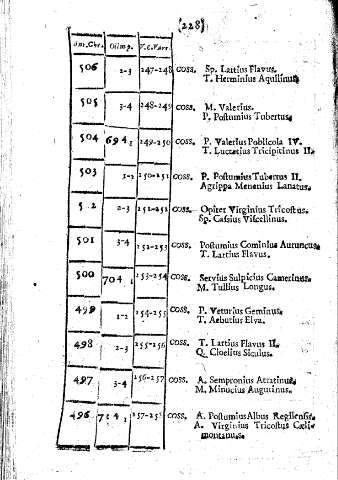 (228)
Ant.Chr. Olimp. V.c.Varr.
506 2-3 247-248 COSS. Sp. Lartius Flavus.
T. Herminius Aquilinus.
505 3-4 248-249 COSS. M. Valerius.
P. Postumius Tubertus.
504 694,1 249-250 COSS. P. Valerius Poblicola IV.
T. Lucratius Tricipitinus II.
503 1-2 250-251 COSS. P. Postumius Tubertus II.
Agrippa Menenius Lanatus.
5 2 2-3 251-252 COSS. Opiter Virginius Tricostus.
Sp. Cassius Viscellinus.
501 3-4 252-253 COSS. Postumus Cominius Auruncus.
T. Lartius Flavus.
500 704,1 253-254 COSS. Servius Sulpicius Camerinus.
M. Tullius Longus.
499 1-2 254-255 COSS. P. Veturius Geminus.
T. Aebutius Elva.
498 2-3 255-256 COSS. T. Lartius Flavus II.
Q. Cloelius Siculus.
497 3-4 256-257 COSS. A. Sempronius Atratinus.
M. Minucius Augurinus.
496 714,1 257-258 COSS. A. Postumius Albus Regilensis.
A. Virginius Tricostus Cæli-
montanus.